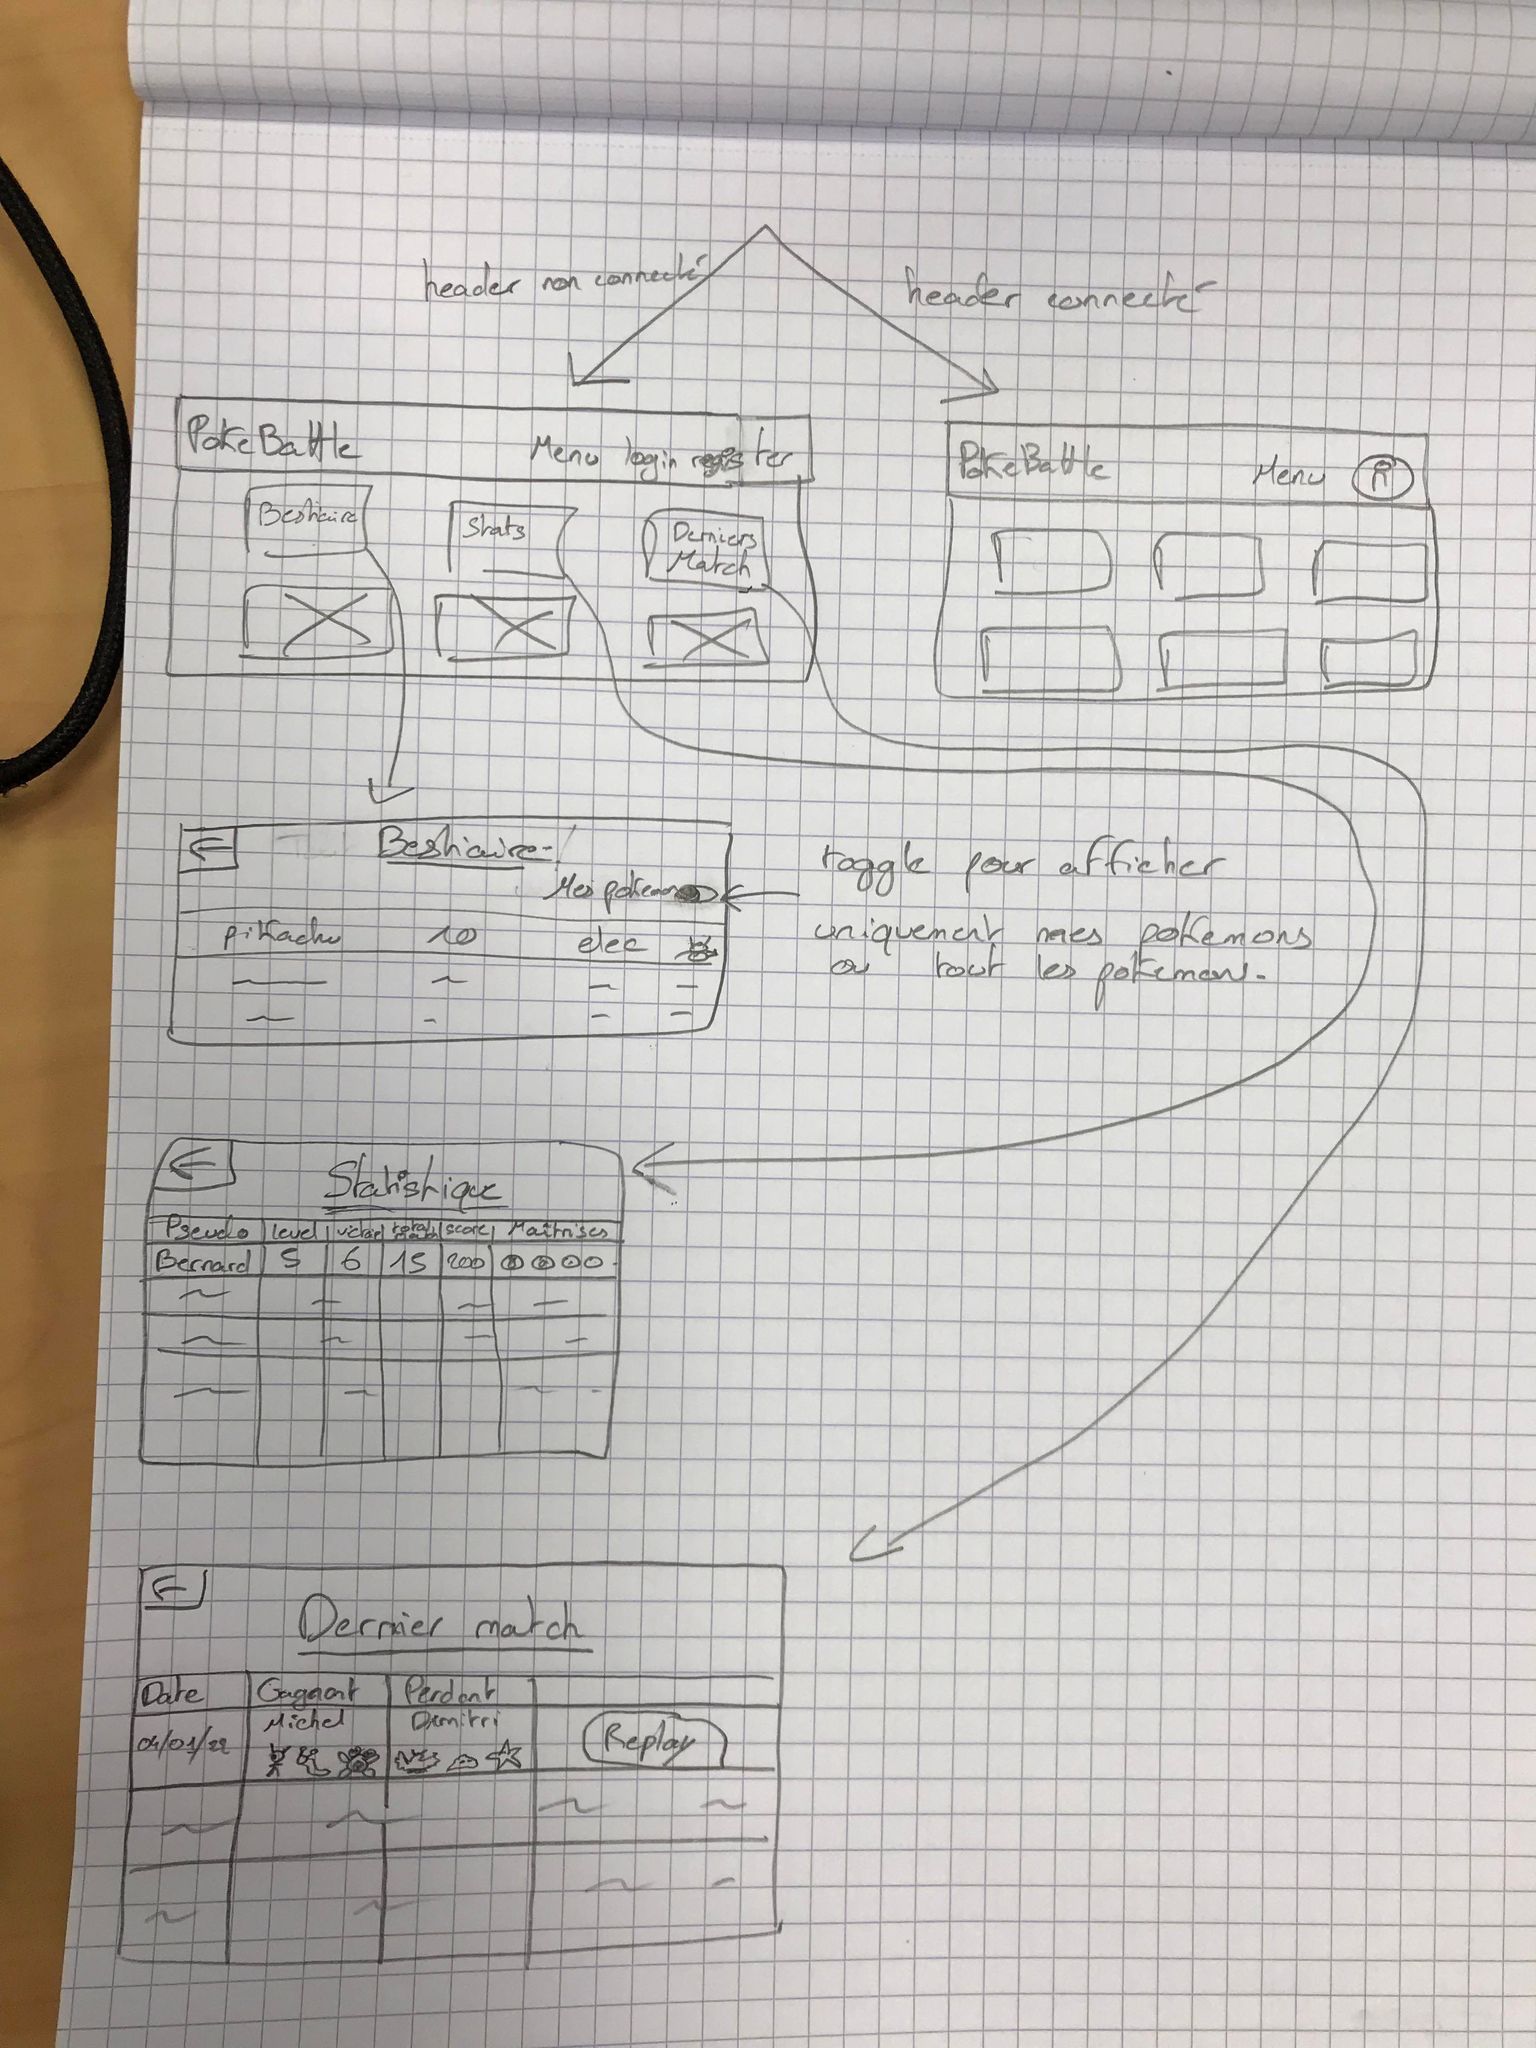 header non connecté
header connecté
PokeBattle
Menu login register
Bestiaire
Stats
Derniers
Match
PokeBattle
Menu
Bestiaire
Mes pokemons
pikachu 10 elec
toggle pour afficher
uniquement mes pokemons
ou tout les pokemons.
Statistique
Pseudo level victoire total match score Maitrises
Bernard 5 6 15 200
Dernier match
Date Gagnant Perdant
04/01/22 Michel Dimitri
Replay